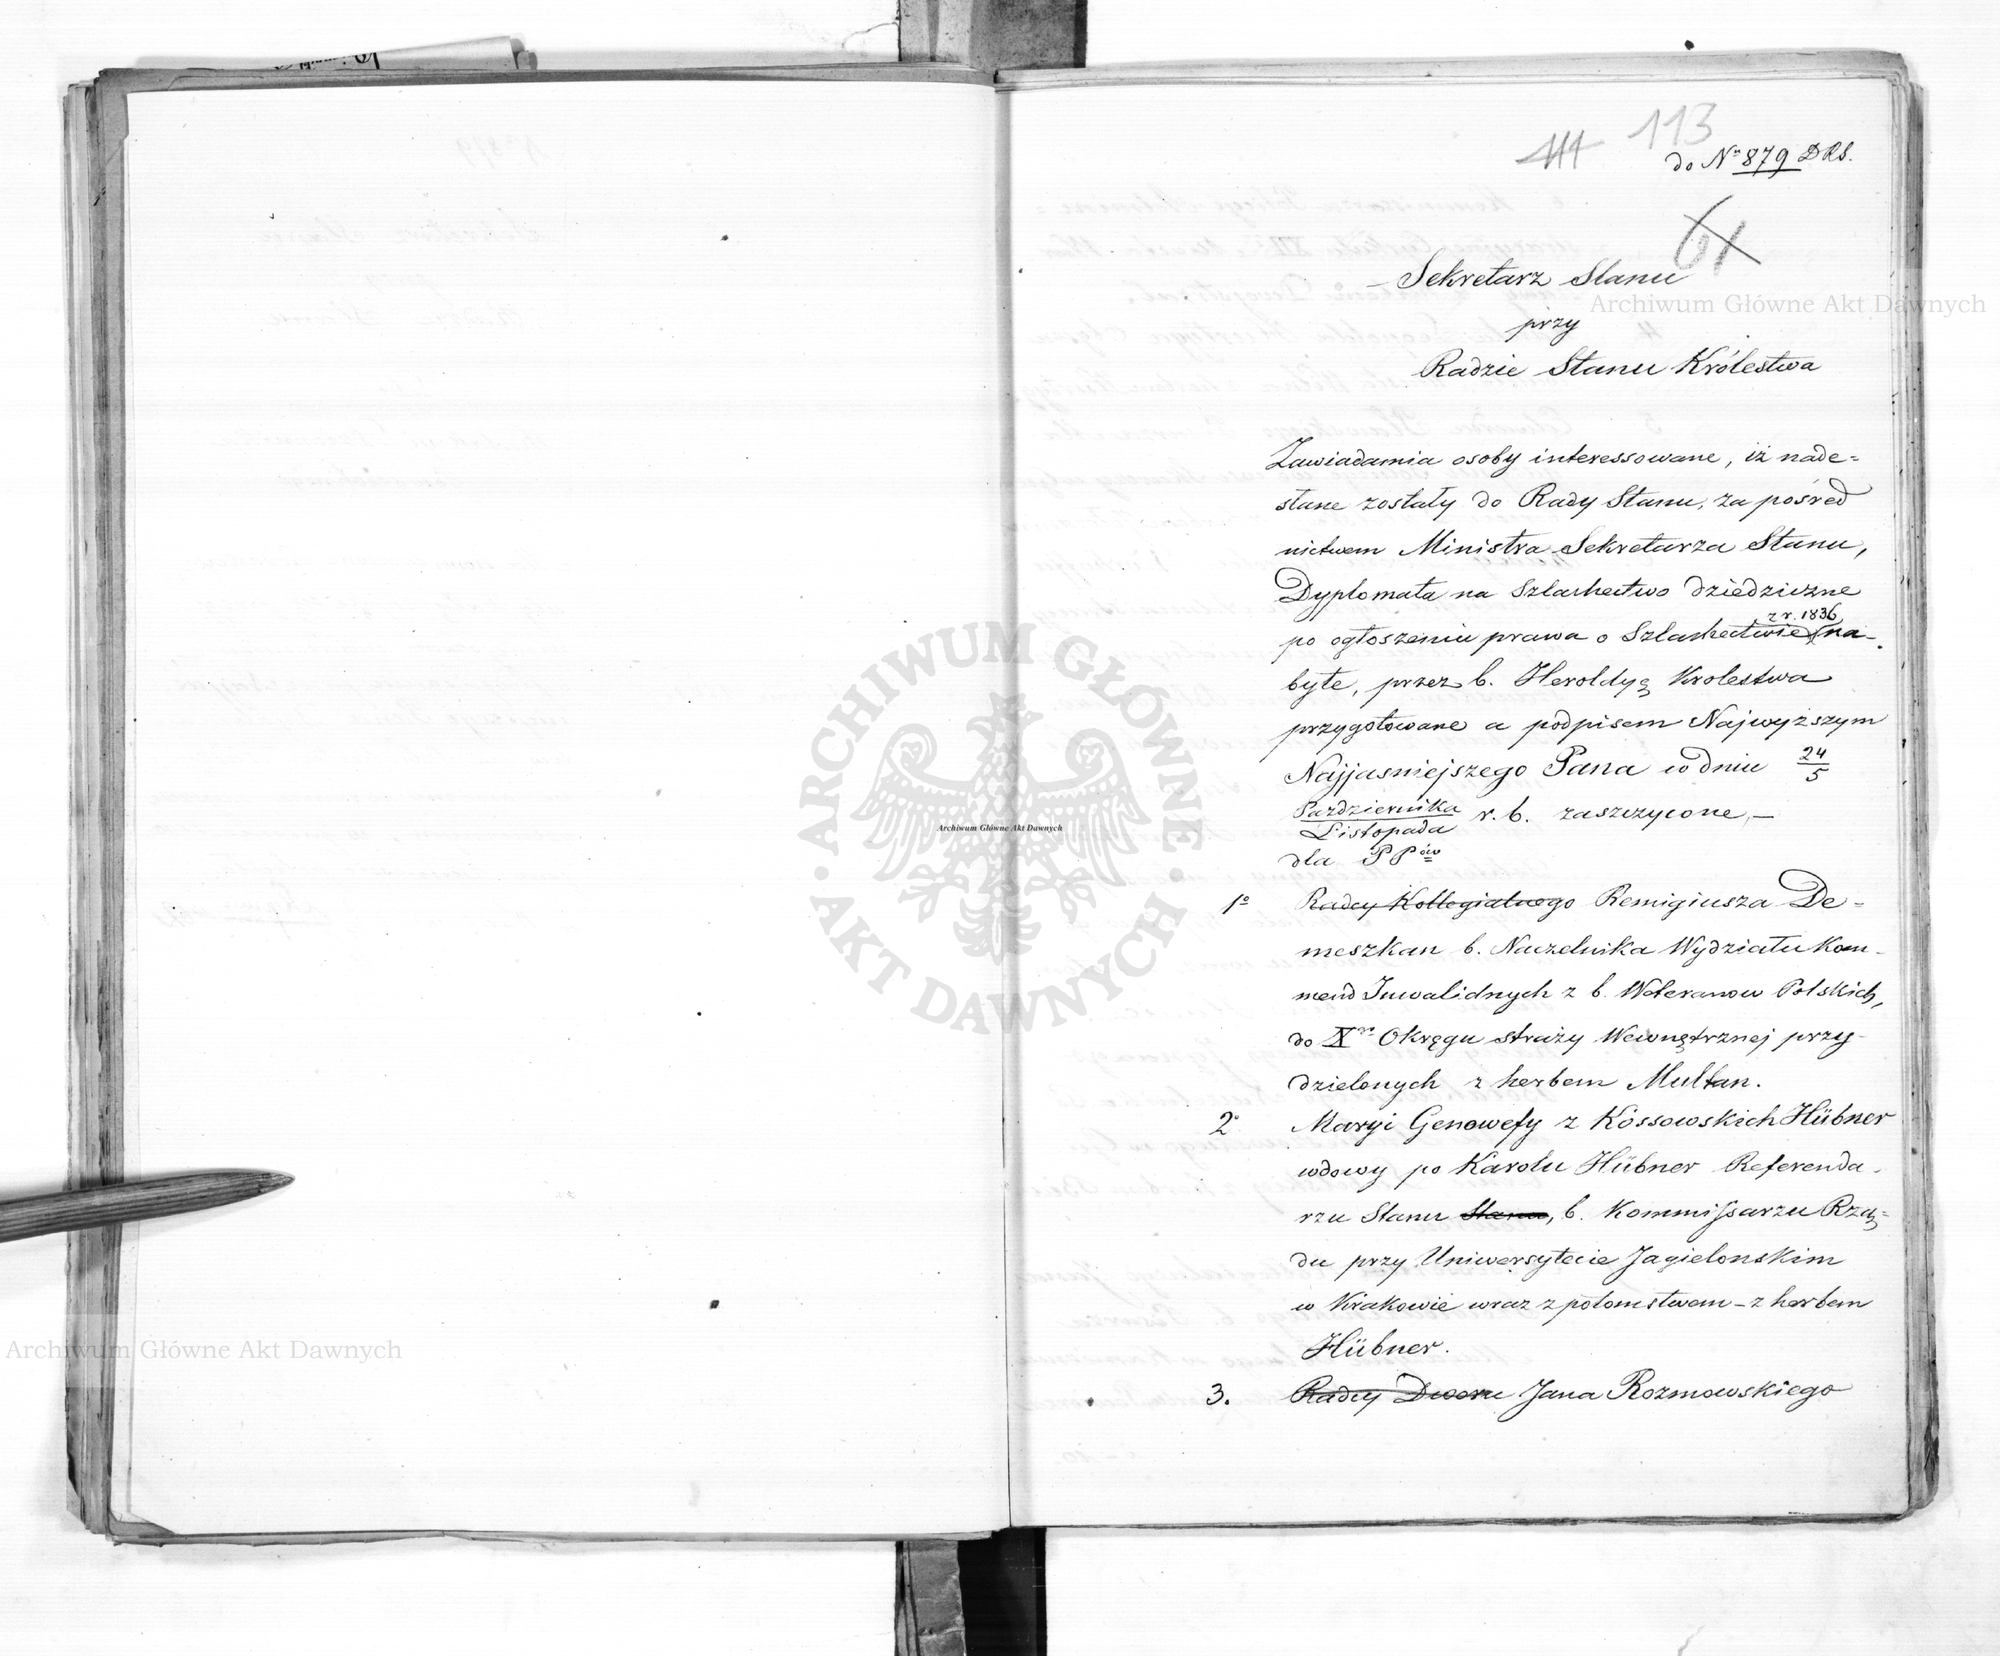 111 113
do Nº 879 DRS.
61
Sekretarz Stanu
przy
Radzie Stanu Królestwa
Zawiadamia osoby interessowane, iż nade=
słane zostały do Rady Stanu, za pośred
nictwem Ministra Sekretarza Stanu,
Dyplomata na Szlachectwo dziedziczne
z r. 1836
po ogłoszeniu prawa o Szlachectwie na-
byte, przez b. Heroldyą Krolestwa
przygotowane a podpisem Najwyższym
Najjasniejszego Pana w dniu 24/5
Października/Listopada r. b. zaszczycone,—
dla PPów
1º Radcy Kollegialnego Remigiusza De=
meszkan b. Naczelnika Wydziału Kom-
mend Inwalidnych z b. Weteranow Polskich,
do Xgo Okręgu straży Wewnętrznej przy-
dzielonych z herbem Multan.
2º Maryi Genowefy z Kossowskich Hübner
wdowy po Karolu Hübner Referenda-
rzu Stanu Stanu, b. Kommissarzu Rzą=
du przy Uniwersytecie Jagielonskim
w Krakowie wraz z potomstwem – z herbem
Hübner.
3. Radcy Dworu Jana Rozmowskiego
Archiwum Główne Akt Dawnych
ARCHIWUM GŁÓWNE
AKT DAWNYCH
Archiwum Główne Akt Dawnych
Archiwum Główne Akt Dawnych